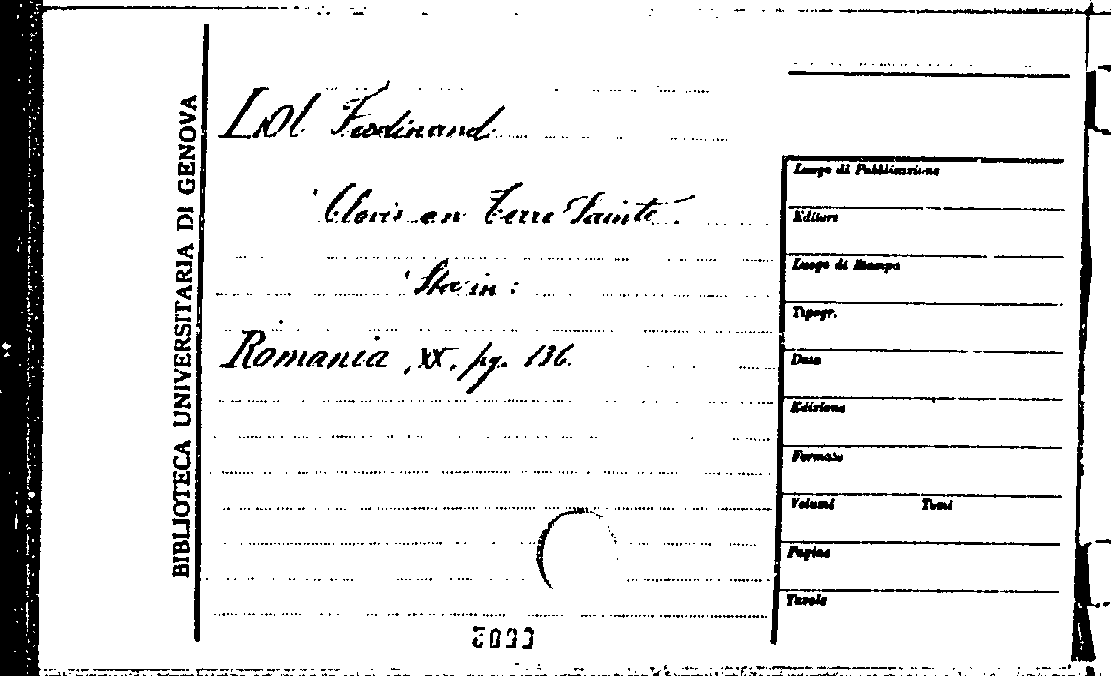 BIBLIOTECA UNIVERSITARIA DI GENOVA
Lot Ferdinand
Clovis en Terre Sainte.
Sta in:
Romania, XX, pg. 136.
Luogo di Pubblicazione
Editore
Luogo di Stampa
Tipogr.
Data
Edizione
Formato
Volumi Tomi
Pagine
Tavole